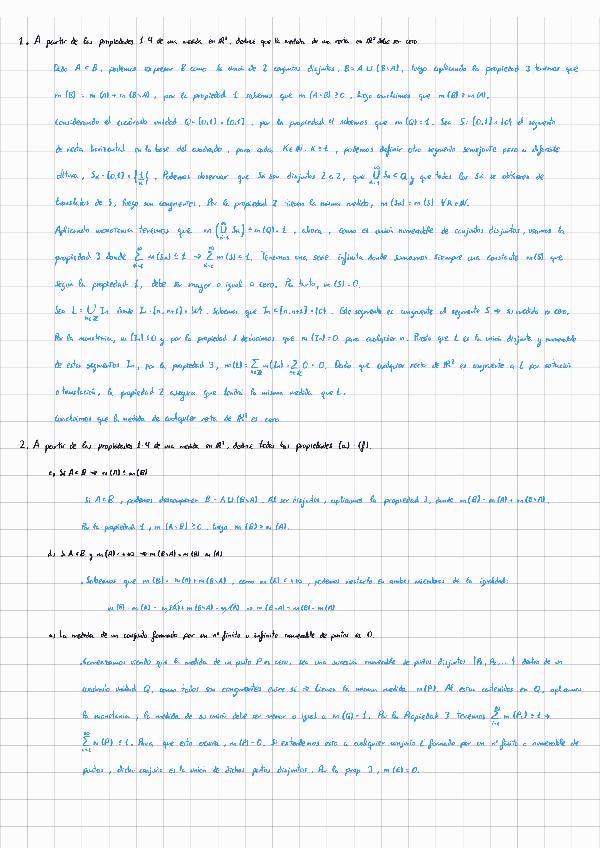 1. A partir de las propiedades 1-4 de una medida en ℝ², deducir que la medida de una recta en ℝ² debe ser cero.
Dado A ⊂ B, podemos expresar B como la unión de 2 conjuntos disjuntos. B = A ⊔ (B∖A), luego aplicando la propiedad 3 tenemos que
m(B) = m(A) + m(B∖A), por la propiedad 1 sabemos que m(A∖B) ≥ 0. Luego concluimos que m(B) ≥ m(A).
Considerando el cuadrado unidad Q = [0,1] × [0,1], por la propiedad 4 sabemos que m(Q) = 1. Sea S: [0,1] × {0} el segmento
de recta horizontal en la base del cuadrado, para cada K ∈ ℕ, K ≥ 1, podemos definir otro segmento semejante pero a diferente
altura, Sₖ = [0,1] × {1/K}. Podemos observar que Sₖ son disjuntos 2 a 2, que ⋃ Sₖ ⊂ Q y que todos los Sₖ se obtienen de
translados de S, luego son congruentes. Por la propiedad 2 tienen la misma medida, m(Sₖ) = m(S) ∀K∈ℕ.
Aplicando monotonía tenemos que m(⋃ Sₖ) ≤ m(Q) = 1, ahora, como es unión numerable de conjuntos disjuntos, usamos la
propiedad 3 donde ∑ m(Sₖ) ≤ 1 → ∑ m(S) ≤ 1. Tenemos una serie infinita donde sumamos siempre una constante m(S) que
según la propiedad 1, debe ser mayor o igual a cero. Por tanto, m(S) = 0.
Sea L = ⋃ Iₙ donde Iₙ = [n, n+1] × {0}. Sabemos que Iₙ ⊂ [n, n+1] × {0}. Este segmento es congruente al segmento S ⇒ su medida es cero.
Por la monotonía, m(Iₙ) ≤ 0 y por la propiedad 1 deducimos que m(Iₙ) = 0 para cualquier n. Puesto que L es la unión disjunta y numerable
de estos segmentos Iₙ, por la propiedad 3, m(L) = ∑ m(Iₙ) = ∑ 0 = 0. Dado que cualquier recta de ℝ² es congruente a L por rotación
o translación, la propiedad 2 asegura que tendrá la misma medida que L.
Concluimos que la medida de cualquier recta de ℝ² es cero
2. A partir de las propiedades 1-4 de una medida en ℝ², deducir todas las propiedades (a)-(f).
c) Si A ⊂ B ⇒ m(A) ≤ m(B)
Si A ⊂ B, podemos descomponer B = A ⊔ (B∖A). Al ser disjuntos, aplicamos la propiedad 3, donde m(B) = m(A) + m(B∖A).
Por la propiedad 1, m(A∖B) ≥ 0. Luego m(B) ≥ m(A).
d) Si A ⊂ B y m(A) < +∞ ⇒ m(B∖A) = m(B) - m(A)
Sabemos que m(B) = m(A) + m(B∖A), como m(A) < +∞, podemos restarlo en ambos miembros de la igualdad:
m(B) - m(A) = m(A) + m(B∖A) - m(A) ⇒ m(B∖A) = m(B) - m(A)
a) La medida de un conjunto formado por un nº finito o infinito numerable de puntos es 0.
Comenzamos viendo que la medida de un punto P es cero. sea una sucesión numerable de puntos disjuntos {P₁, P₂, ...} dentro de un
cuadrado unidad Q, como todos son congruentes entre sí ⇒ tienen la misma medida m(P). Al estar contenidos en Q, aplicamos
la monotonía, la medida de su unión debe ser menor o igual a m(Q) = 1. Por la Propiedad 3 tenemos ∑ m(Pᵢ) ≤ 1 ⇒
∑ m(P) ≤ 1. Para que esto ocurra, m(P) = 0. Si extendemos esto a cualquier conjunto E formado por un nº finito o numerable de
puntos, dicho conjunto es la unión de dichos puntos disjuntos. Por la prop 3, m(E) = 0.